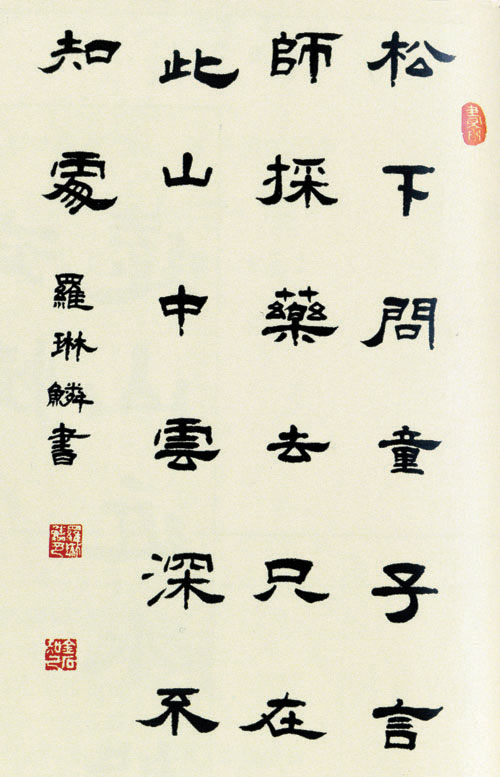 松下問童子言
師採藥去只在
此山中雲深不
知處
羅琳鱗書
金石知己